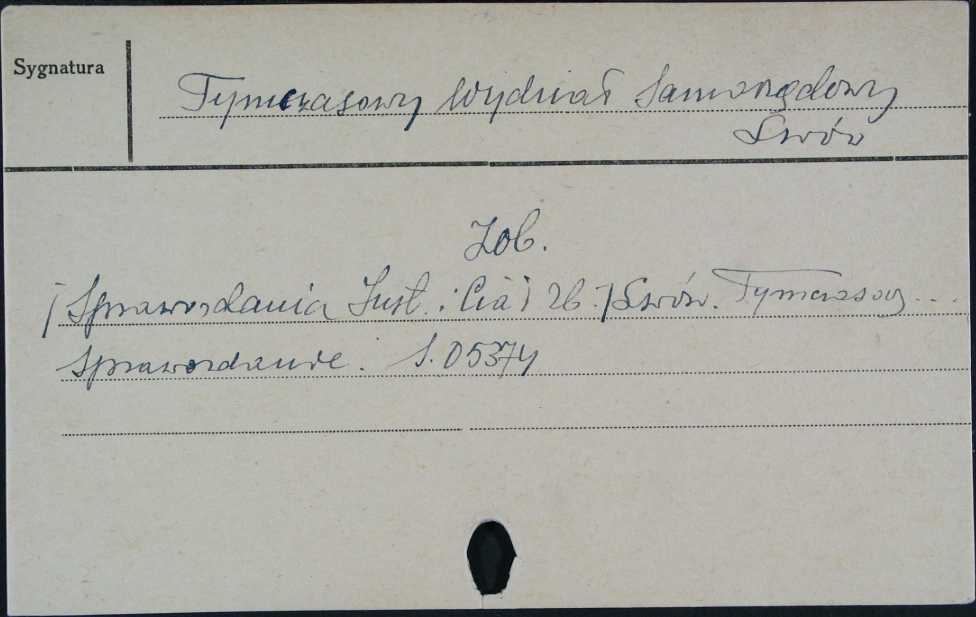 Sygnatura
Tymczasowy Wydział Samorządowy
Lwów
Zob.
[Sprawozdania Inst. i Ciał Zb.] Lwów. Tymczasowy...
Sprawozdanie. S.05374